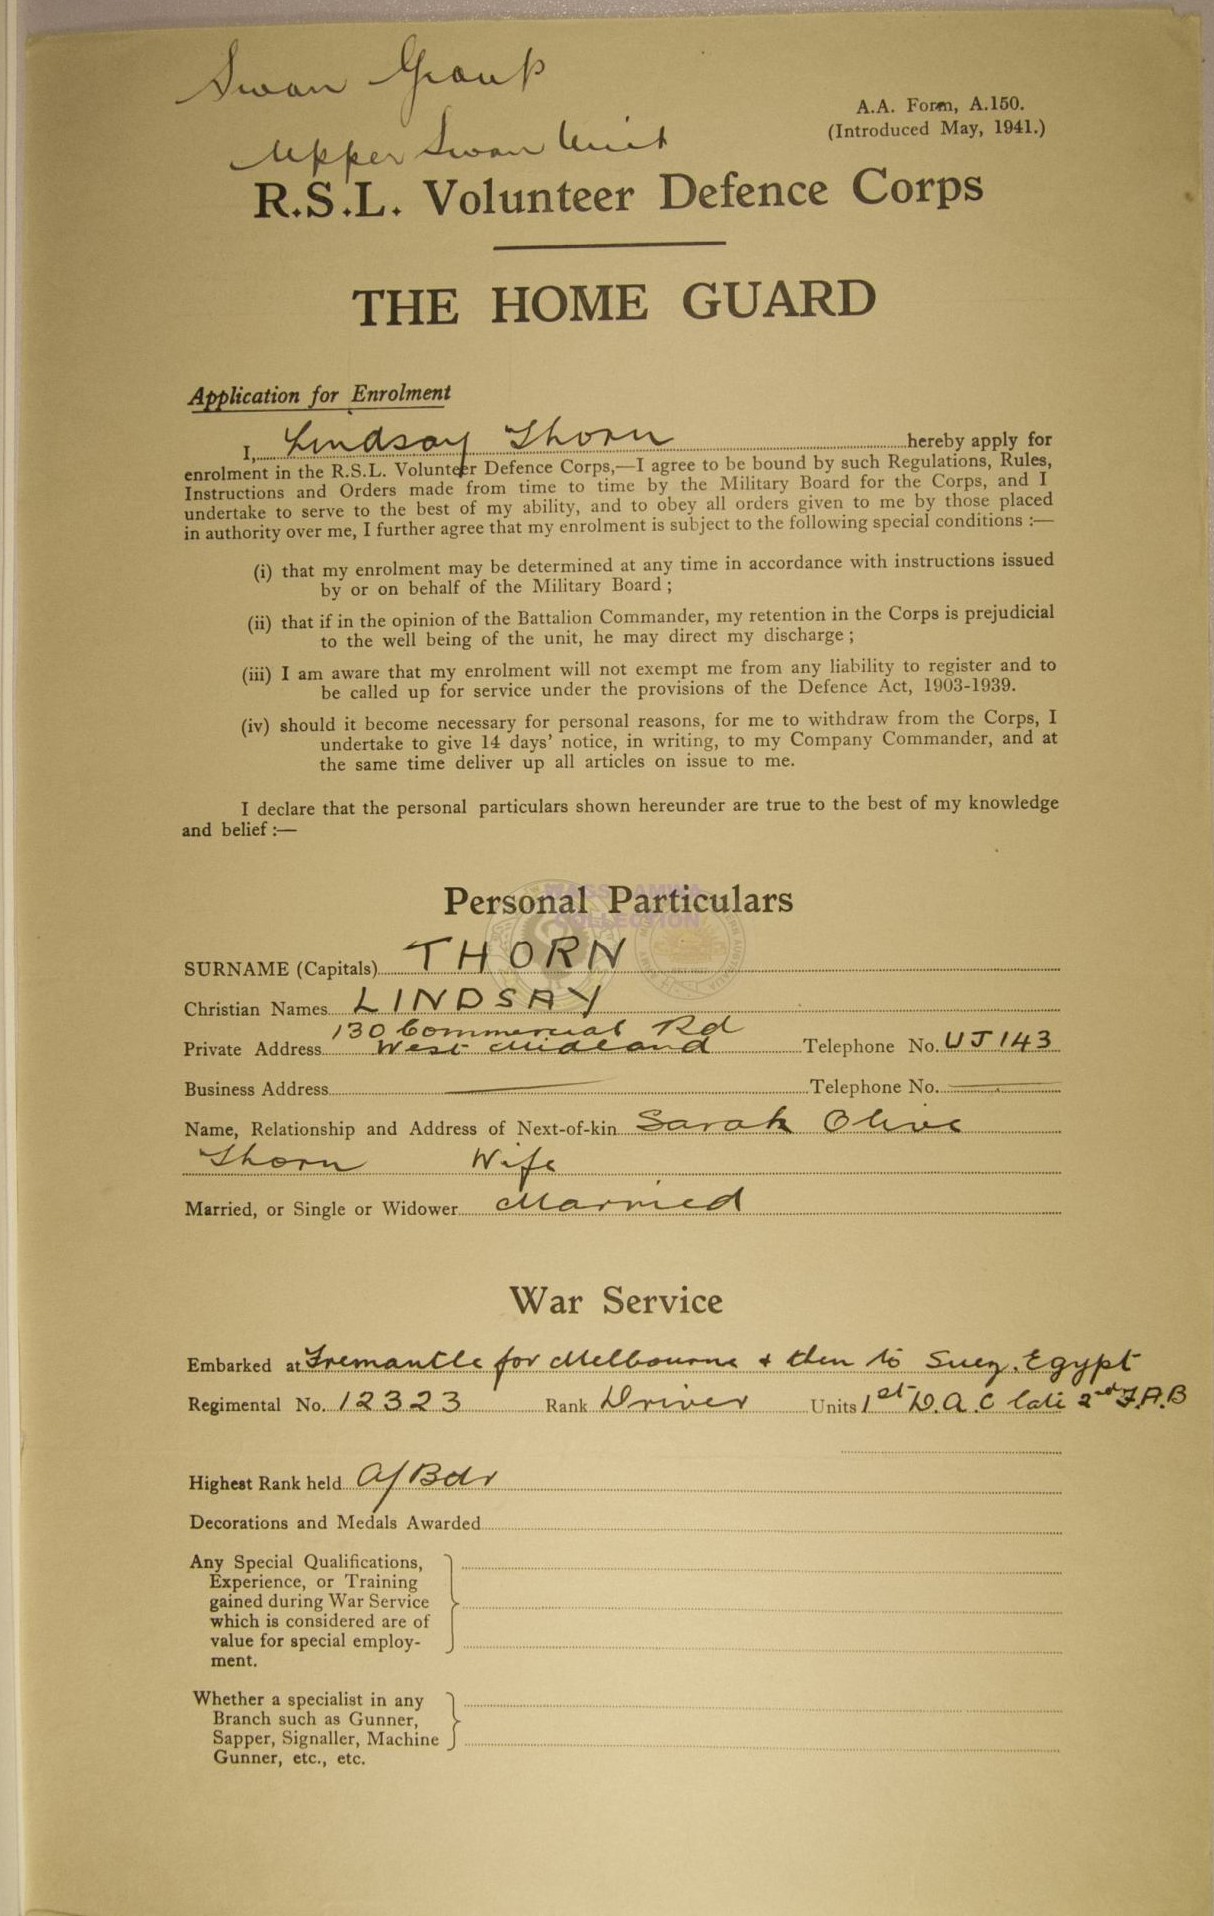 Swan Group
Upper Swan Unit
A.A. Form, A.150.
(Introduced May, 1941.)
R.S.L. Volunteer Defence Corps
THE HOME GUARD
Application for Enrolment
I, Lindsay Thorn hereby apply for
enrolment in the R.S.L. Volunteer Defence Corps,—I agree to be bound by such Regulations, Rules,
Instructions and Orders made from time to time by the Military Board for the Corps, and I
undertake to serve to the best of my ability, and to obey all orders given to me by those placed
in authority over me, I further agree that my enrolment is subject to the following special conditions :—
(i) that my enrolment may be determined at any time in accordance with instructions issued
by or on behalf of the Military Board ;
(ii) that if in the opinion of the Battalion Commander, my retention in the Corps is prejudicial
to the well being of the unit, he may direct my discharge ;
(iii) I am aware that my enrolment will not exempt me from any liability to register and to
be called up for service under the provisions of the Defence Act, 1903-1939.
(iv) should it become necessary for personal reasons, for me to withdraw from the Corps, I
undertake to give 14 days' notice, in writing, to my Company Commander, and at
the same time deliver up all articles on issue to me.
I declare that the personal particulars shown hereunder are true to the best of my knowledge
and belief :—
WAGS AMWA
COLLECTION
Personal Particulars
SURNAME (Capitals) THORN
Christian Names LINDSAY
130 Commercial Rd
Private Address West Midland Telephone No. UJ143
Business Address Telephone No.
Name, Relationship and Address of Next-of-kin Sarah Olive
Thorn Wife
Married, or Single or Widower Married
War Service
Embarked at Fremantle for Melbourne + then to Suez. Egypt
Regimental No. 12323 Rank Driver Units 1st D.A.C late 2nd F.A.B
Highest Rank held A/Bdr
Decorations and Medals Awarded
Any Special Qualifications,
Experience, or Training
gained during War Service
which is considered are of
value for special employ-
ment.
Whether a specialist in any
Branch such as Gunner,
Sapper, Signaller, Machine
Gunner, etc., etc.